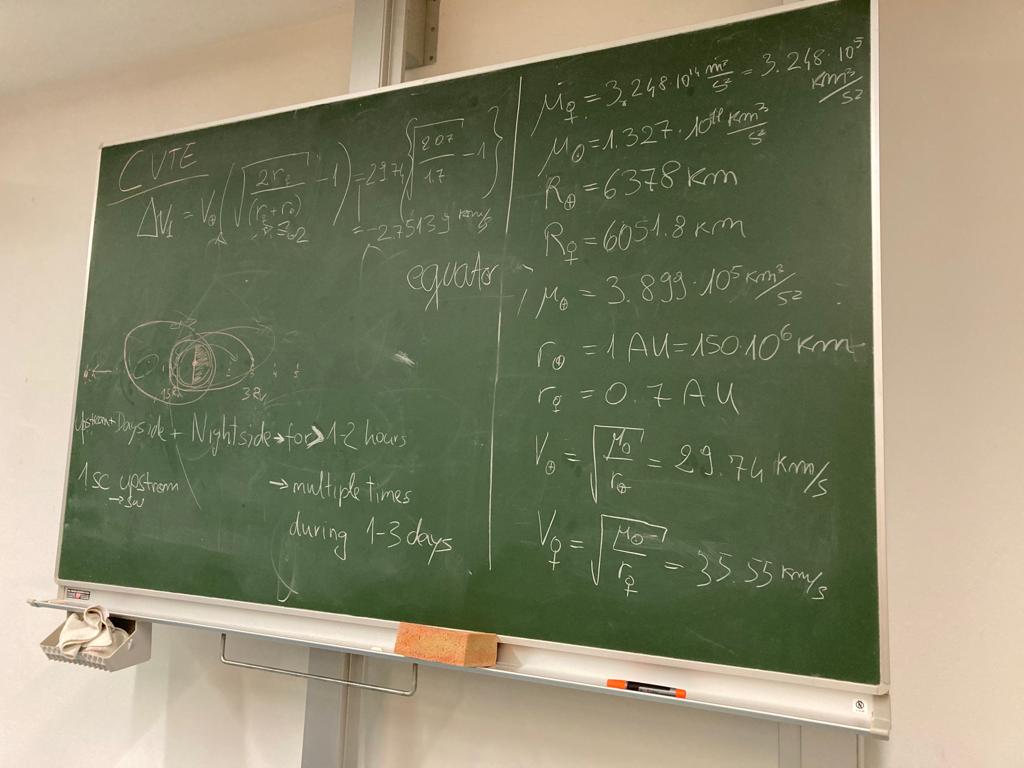 CVTE
ΔV₁ = V⊕ (√(2r♀/(r♀+r⊕)) - 1) = 29.74 {√(2 0.7/1.7) - 1}
= -2.7513 km/s
equator
3Rv
upstream + Dayside + Nightside → for > 1-2 hours
1 sc upstream
→ SW
→ multiple times
during 1-3 days
μ♀ = 3.248·10¹⁴ m³/s² = 3.248·10⁵ km³/s²
μ⊙ = 1.327·10¹¹ km³/s²
R⊕ = 6378 km
R♀ = 6051.8 km
μ⊕ = 3.899·10⁵ km³/s²
r⊕ = 1 AU = 150 10⁶ km
r♀ = 0.7 AU
V⊕ = √(μ⊙/r⊕) = 29.74 km/s
V♀ = √(μ⊙/r♀) = 35.55 km/s